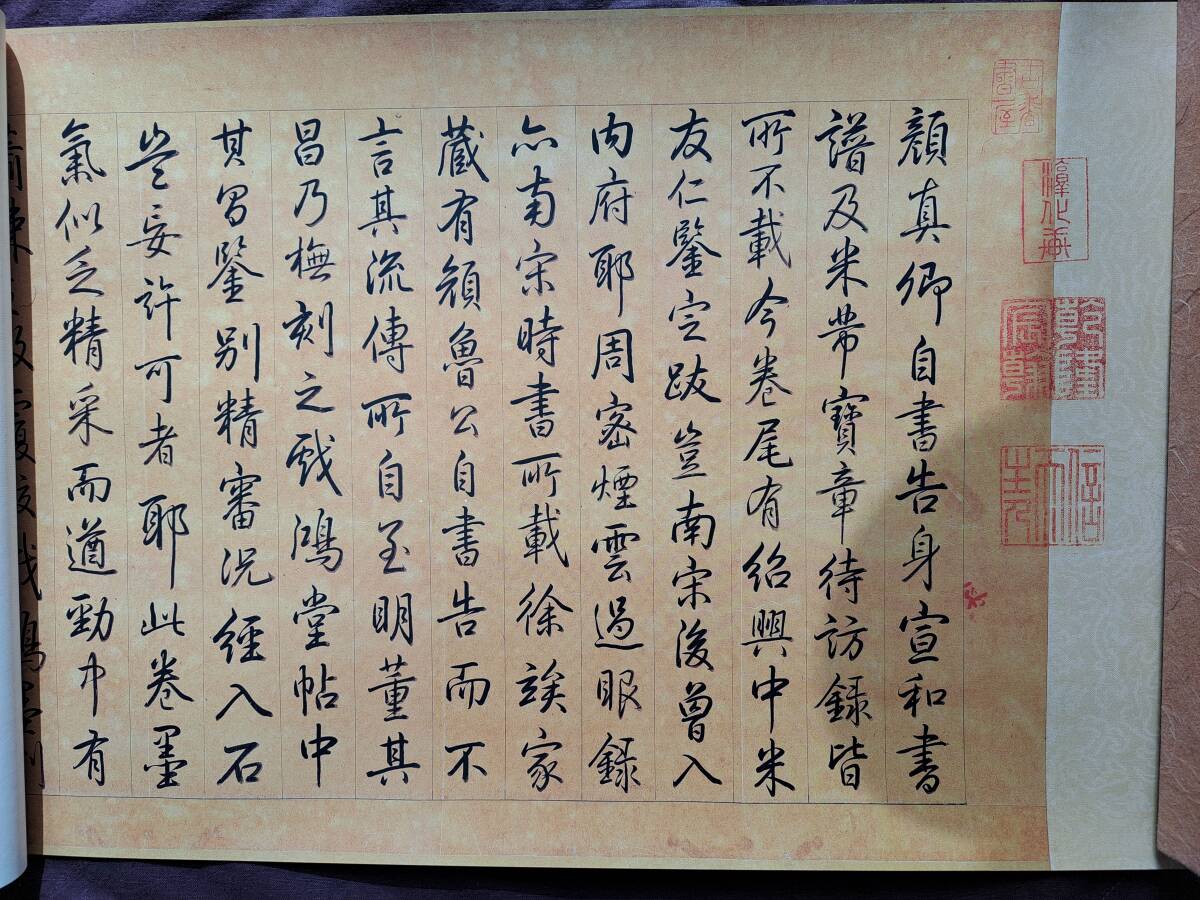 淳化軒
乾隆宸翰
信天主人
顏真卿自書告身宣和書
譜及米芾寶章待訪錄皆
所不載今卷尾有紹興中米
友仁鑒定跋豈南宋後曾入
内府耶周密煙雲過眼錄
亦南宋時書所載徐竢家
藏有顏魯公自書告而不
言其流傳所自至明董其
昌乃橅刻之戲鴻堂帖中
其昌鑒別精審況經入石
豈妄許可者耶此卷墨
氣似乏精采而遒勁中有